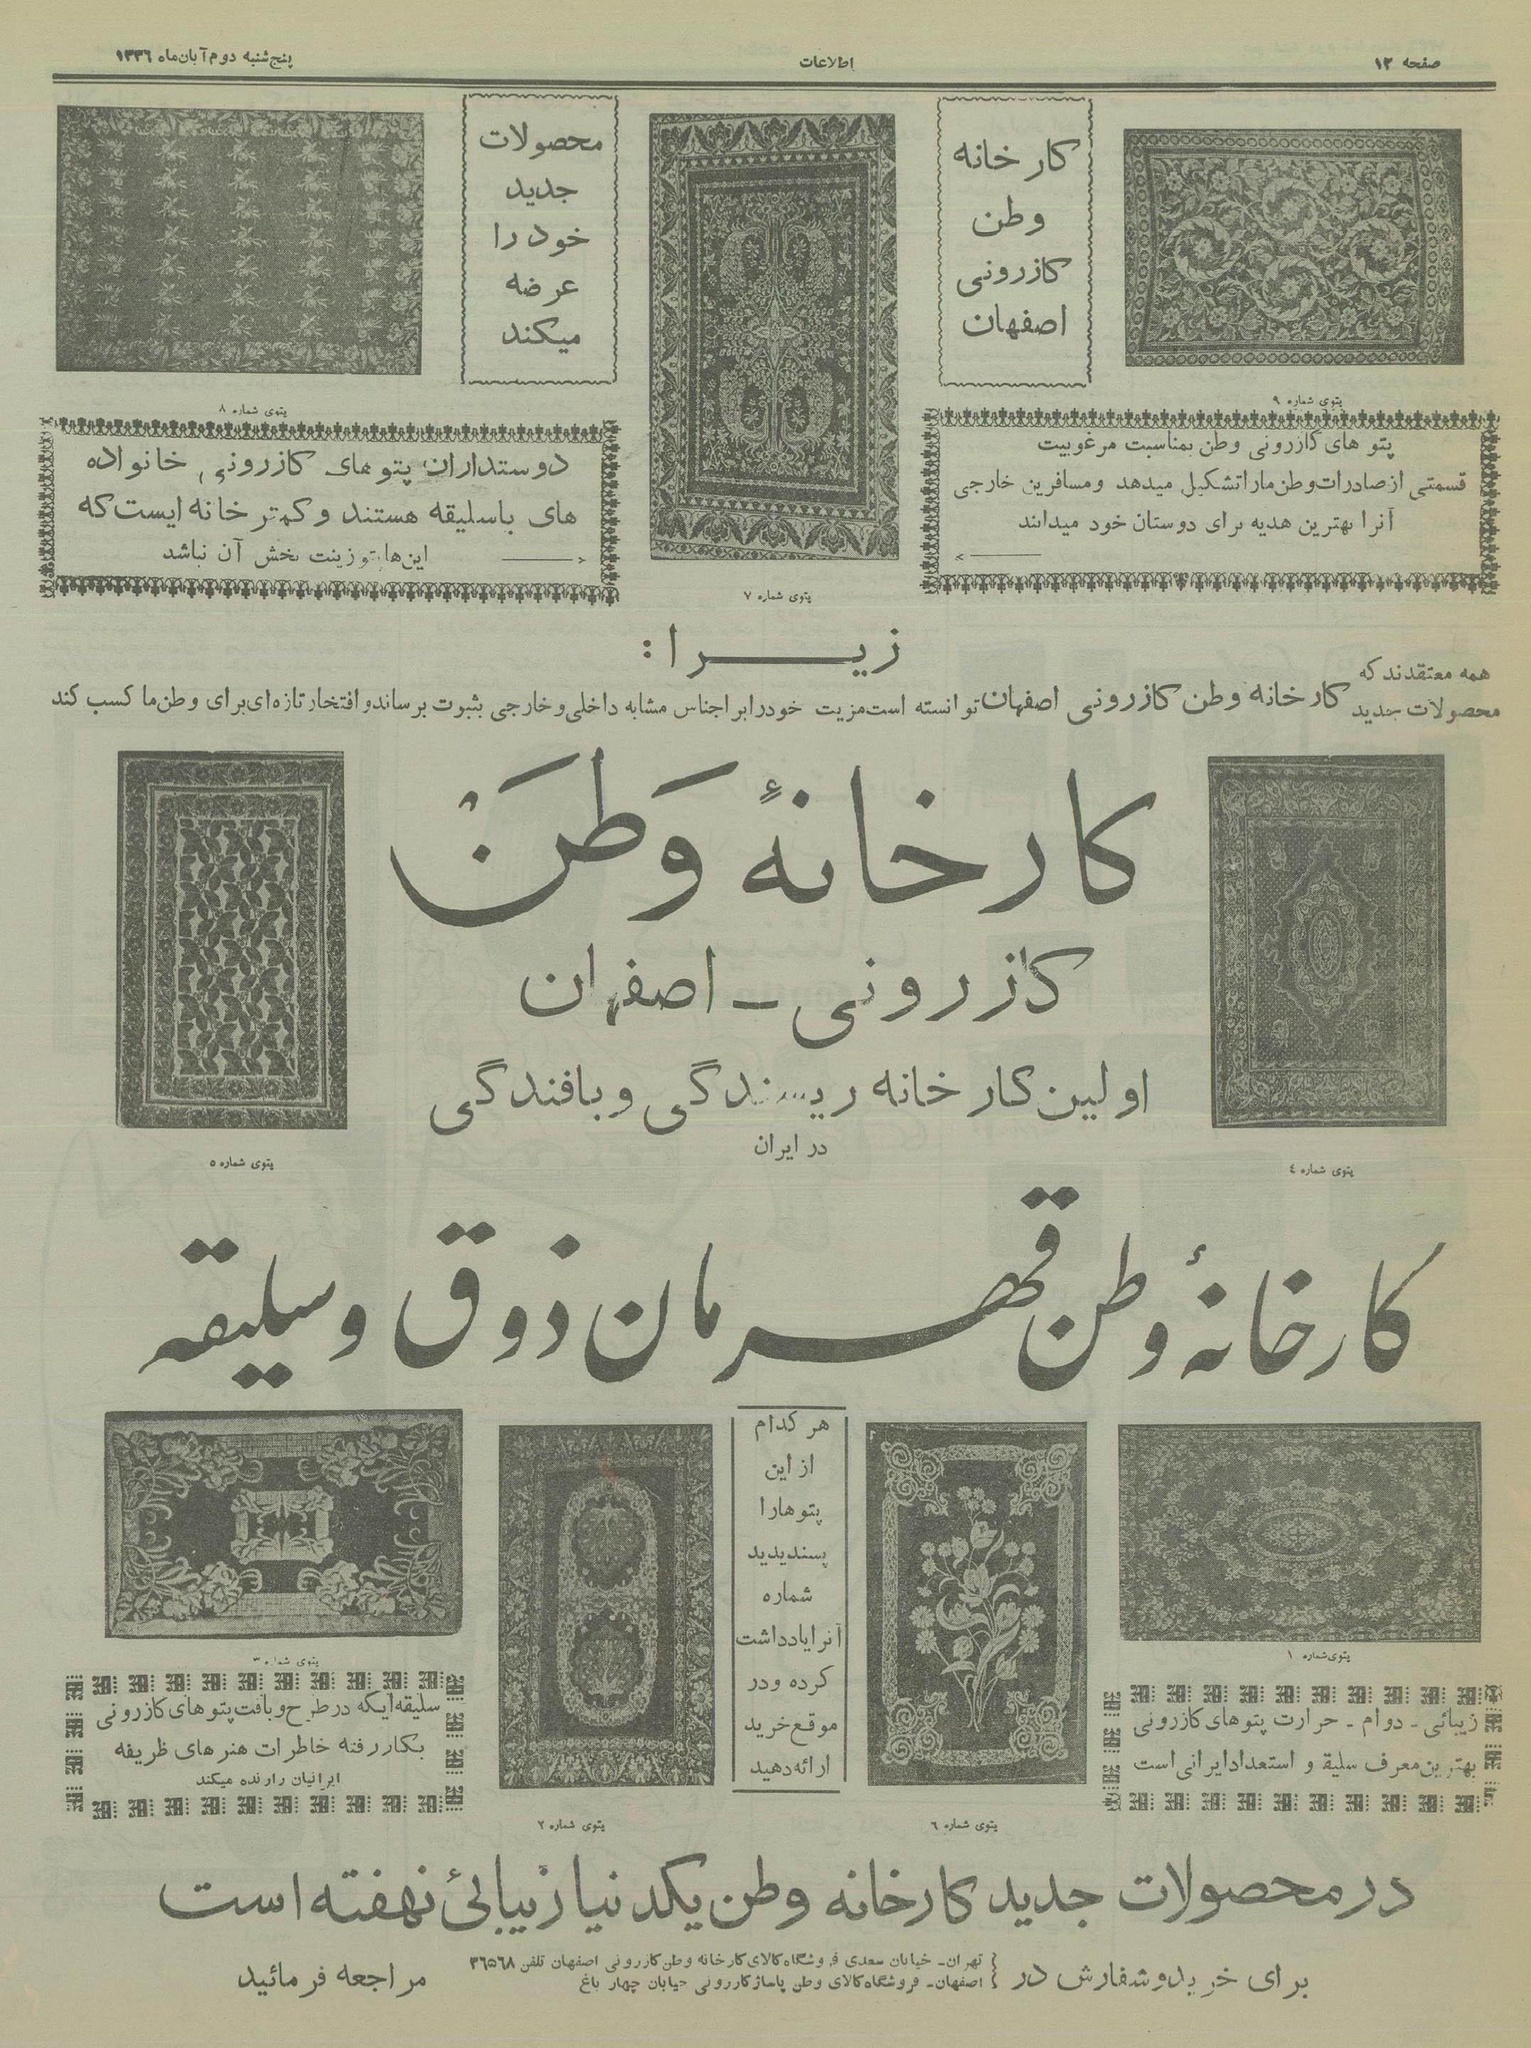 صفحه ۱۲
اطلاعات
پنج‌شنبه دوم آبان‌ماه ۱۳۳۶
کارخانه
وطن
کازرونی
اصفهان
محصولات
جدید
خود را
عرضه
میکند
پتوی شماره ۹
پتوی شماره ۸
پتو های کازرونی وطن بمناسبت مرغوبیت
قسمتی از صادرات وطن ما را تشکیل میدهد و مسافرین خارجی
آنرا بهترین هدیه برای دوستان خود میدانند
دوستداران پتو های کازرونی خانواده
های با سلیقه هستند و کمتر خانه ایست که
این‌ها پتو زینت بخش آن نباشد
پتوی شماره ۷
زیرا :
همه معتقدند که
محصولات جدید کارخانه وطن کازرونی اصفهان توانسته است مزیت خود را بر اجناس مشابه داخلی و خارجی بثبوت برساند و افتخار تازه‌ای برای وطن ما کسب کند
کارخانهٔ وَطَنْ
کازرونی - اصفهان
اولین کارخانه ریسندگی و بافندگی
در ایران
پتوی شماره ۴
پتوی شماره ۵
کارخانهٔ وطن قهرمان ذوق و سلیقه
هر کدام
از این
پتو ها را
پسندیدید
شماره
آنرا یادداشت
کرده و در
موقع خرید
ارائه دهید
پتوی شماره ۱
پتوی شماره ۳
زیبائی - دوام - حرارت پتو های کازرونی
بهترین معرف سلیقه و استعداد ایرانی است
سلیقه ایکه در طرح و بافت پتو های کازرونی
بکار رفته خاطرات هنر های ظریفه
ایرانیان را زنده میکند
پتوی شماره ۶
پتوی شماره ۲
در محصولات جدید کارخانه وطن یکدنیا زیبائی نهفته است
برای خرید و سفارش در
تهران - خیابان سعدی فروشگاه کالای کارخانه وطن کازرونی اصفهان تلفن ۳۶۵۶۸
اصفهان - فروشگاه کالای وطن پاساژ کازرونی خیابان چهار باغ
مراجعه فرمائید